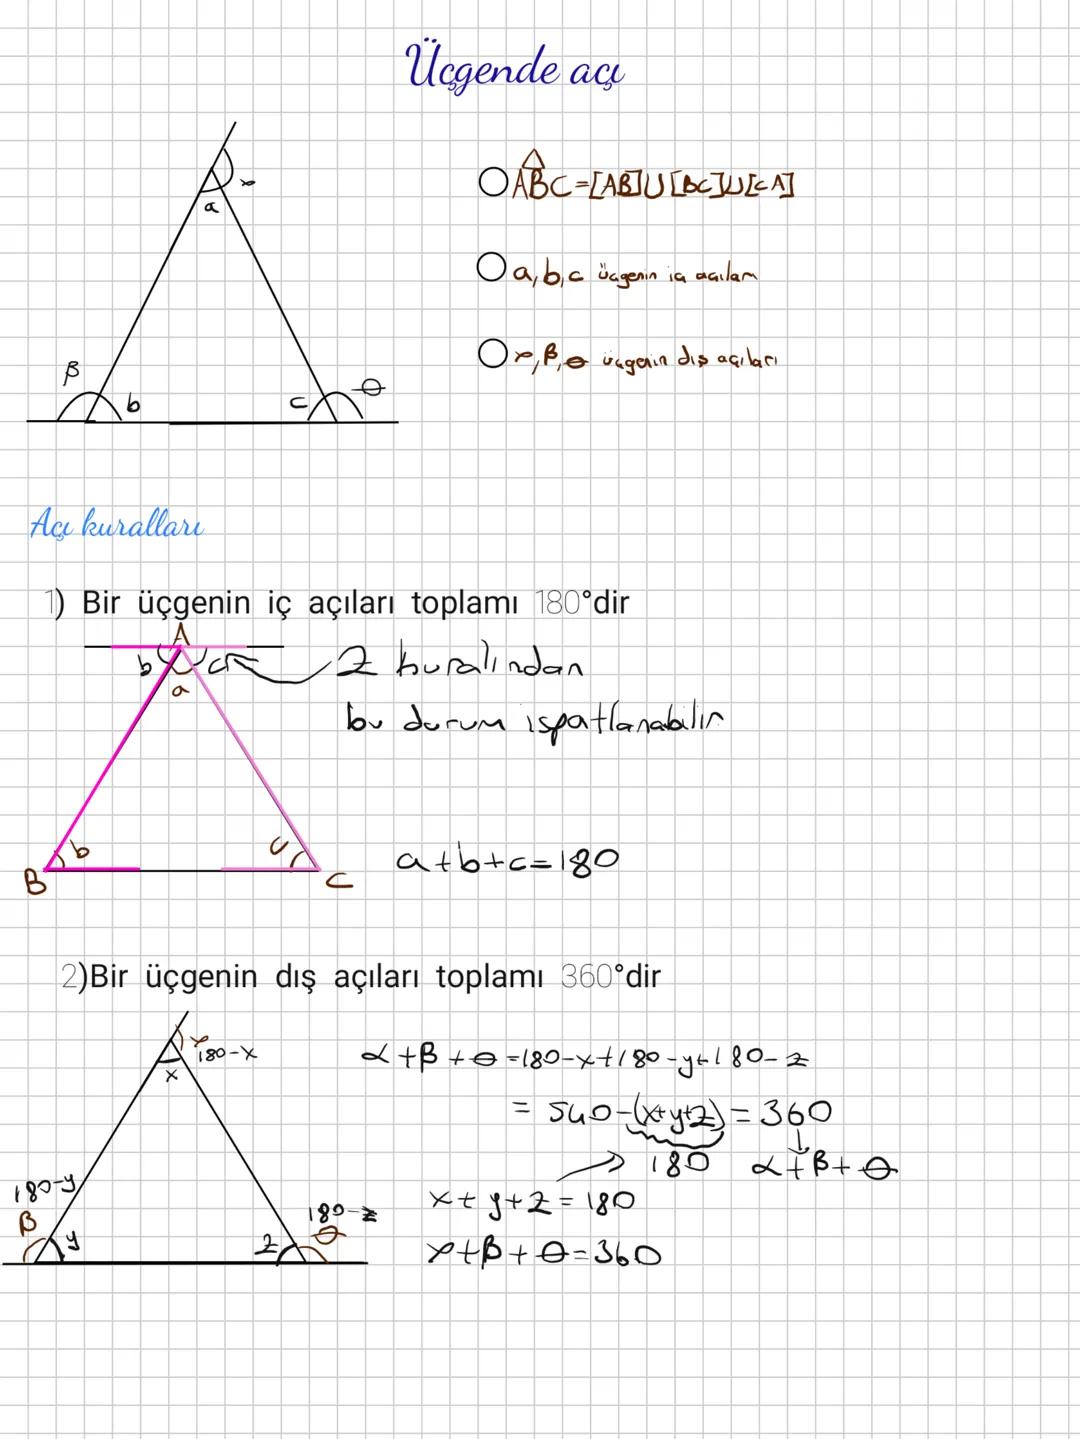 Üçgende açı
α
a
β
b
c
θ
ABC=[AB]U[BC]U[CA]
a,b,c üçgenin iç açıları
α,β,θ üçgenin dış açıları
Açı kuralları
1) Bir üçgenin iç açıları toplamı 180°dir
A
b
c
a
Z kuralından
bu durum ispatlanabilir
b
c
B
C
a+b+c=180
2)Bir üçgenin dış açıları toplamı 360°dir
α
180-x
x
180-y
β
y
z
180-z
θ
α+β+θ=180-x+180-y+180-z
= 540-(x+y+z)=360
180 α+β+θ
x+y+z=180
α+β+θ=360